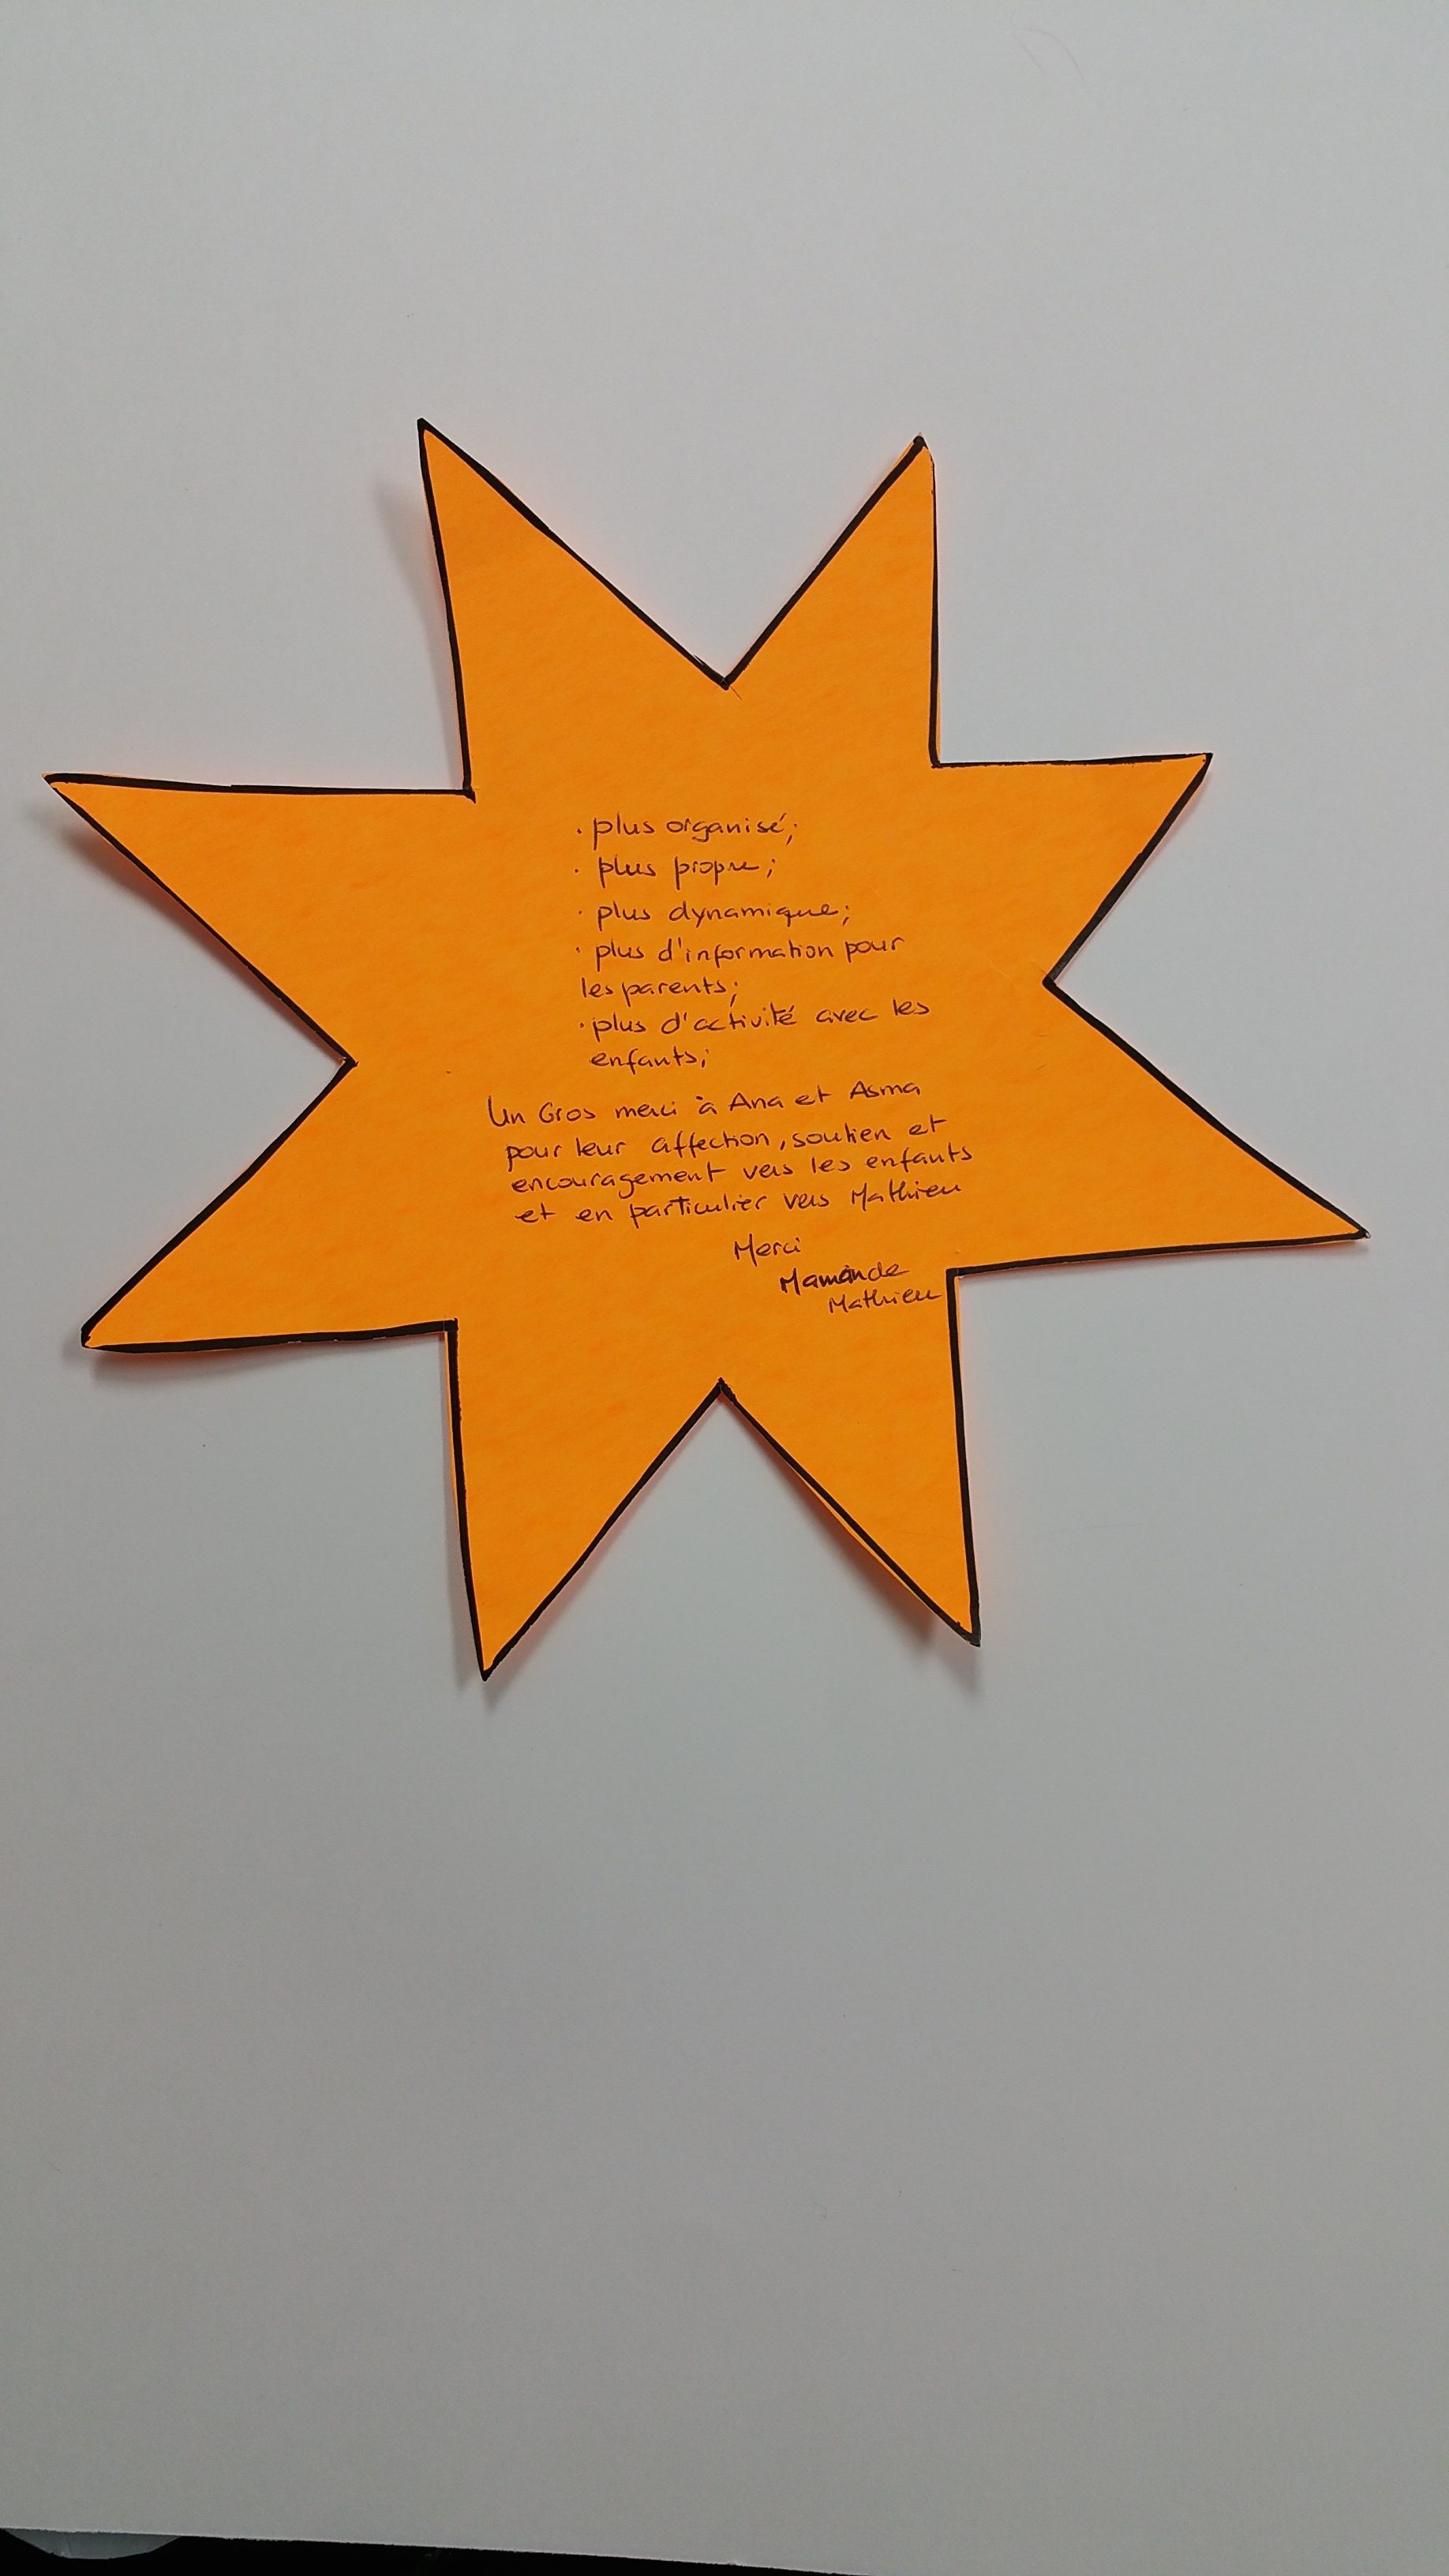 · plus organisé;
· plus propre;
· plus dynamique;
· plus d'information pour
les parents;
· plus d'activité avec les
enfants;
Un Gros merci à Ana et Asma
pour leur affection, soutien et
encouragement vers les enfants
et en particulier vers Mathieu
Merci
Maman de
Mathieu